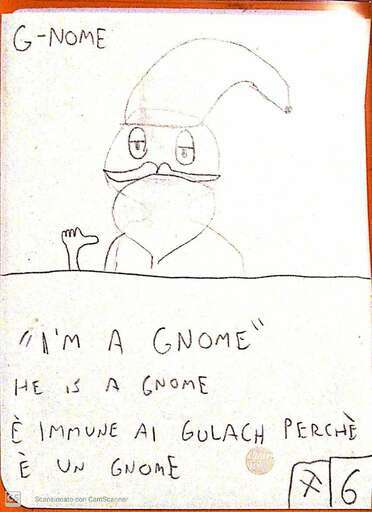 G-NOME
"I'M A GNOME"
HE IS A GNOME
È IMMUNE AI GULACH PERCHÈ
È UN GNOME
6
CS Scansionato con CamScanner